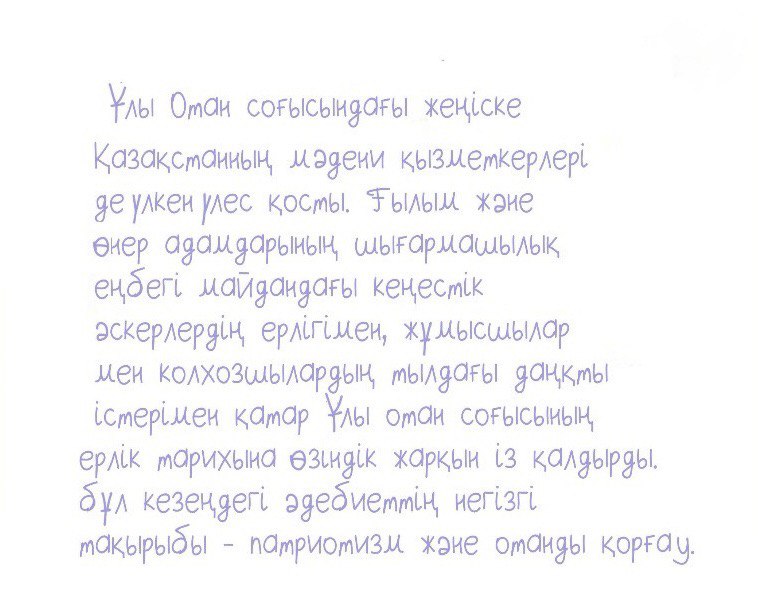 Ұлы Отан соғысындағы жеңіске
Қазақстанның мәдени қызметкерлері
де үлкен үлес қосты. Ғылым және
өнер адамдарының шығармашылық
еңбегі майдандағы кеңестік
әскерлердің ерлігімен, жұмысшылар
мен колхозшылардың тылдағы даңқты
істерімен қатар Ұлы отан соғысының
ерлік тарихына өзіндік жарқын із қалдырды.
бұл кезеңдегі әдебиеттің негізгі
тақырыбы - патриотизм және отанды қорғау.